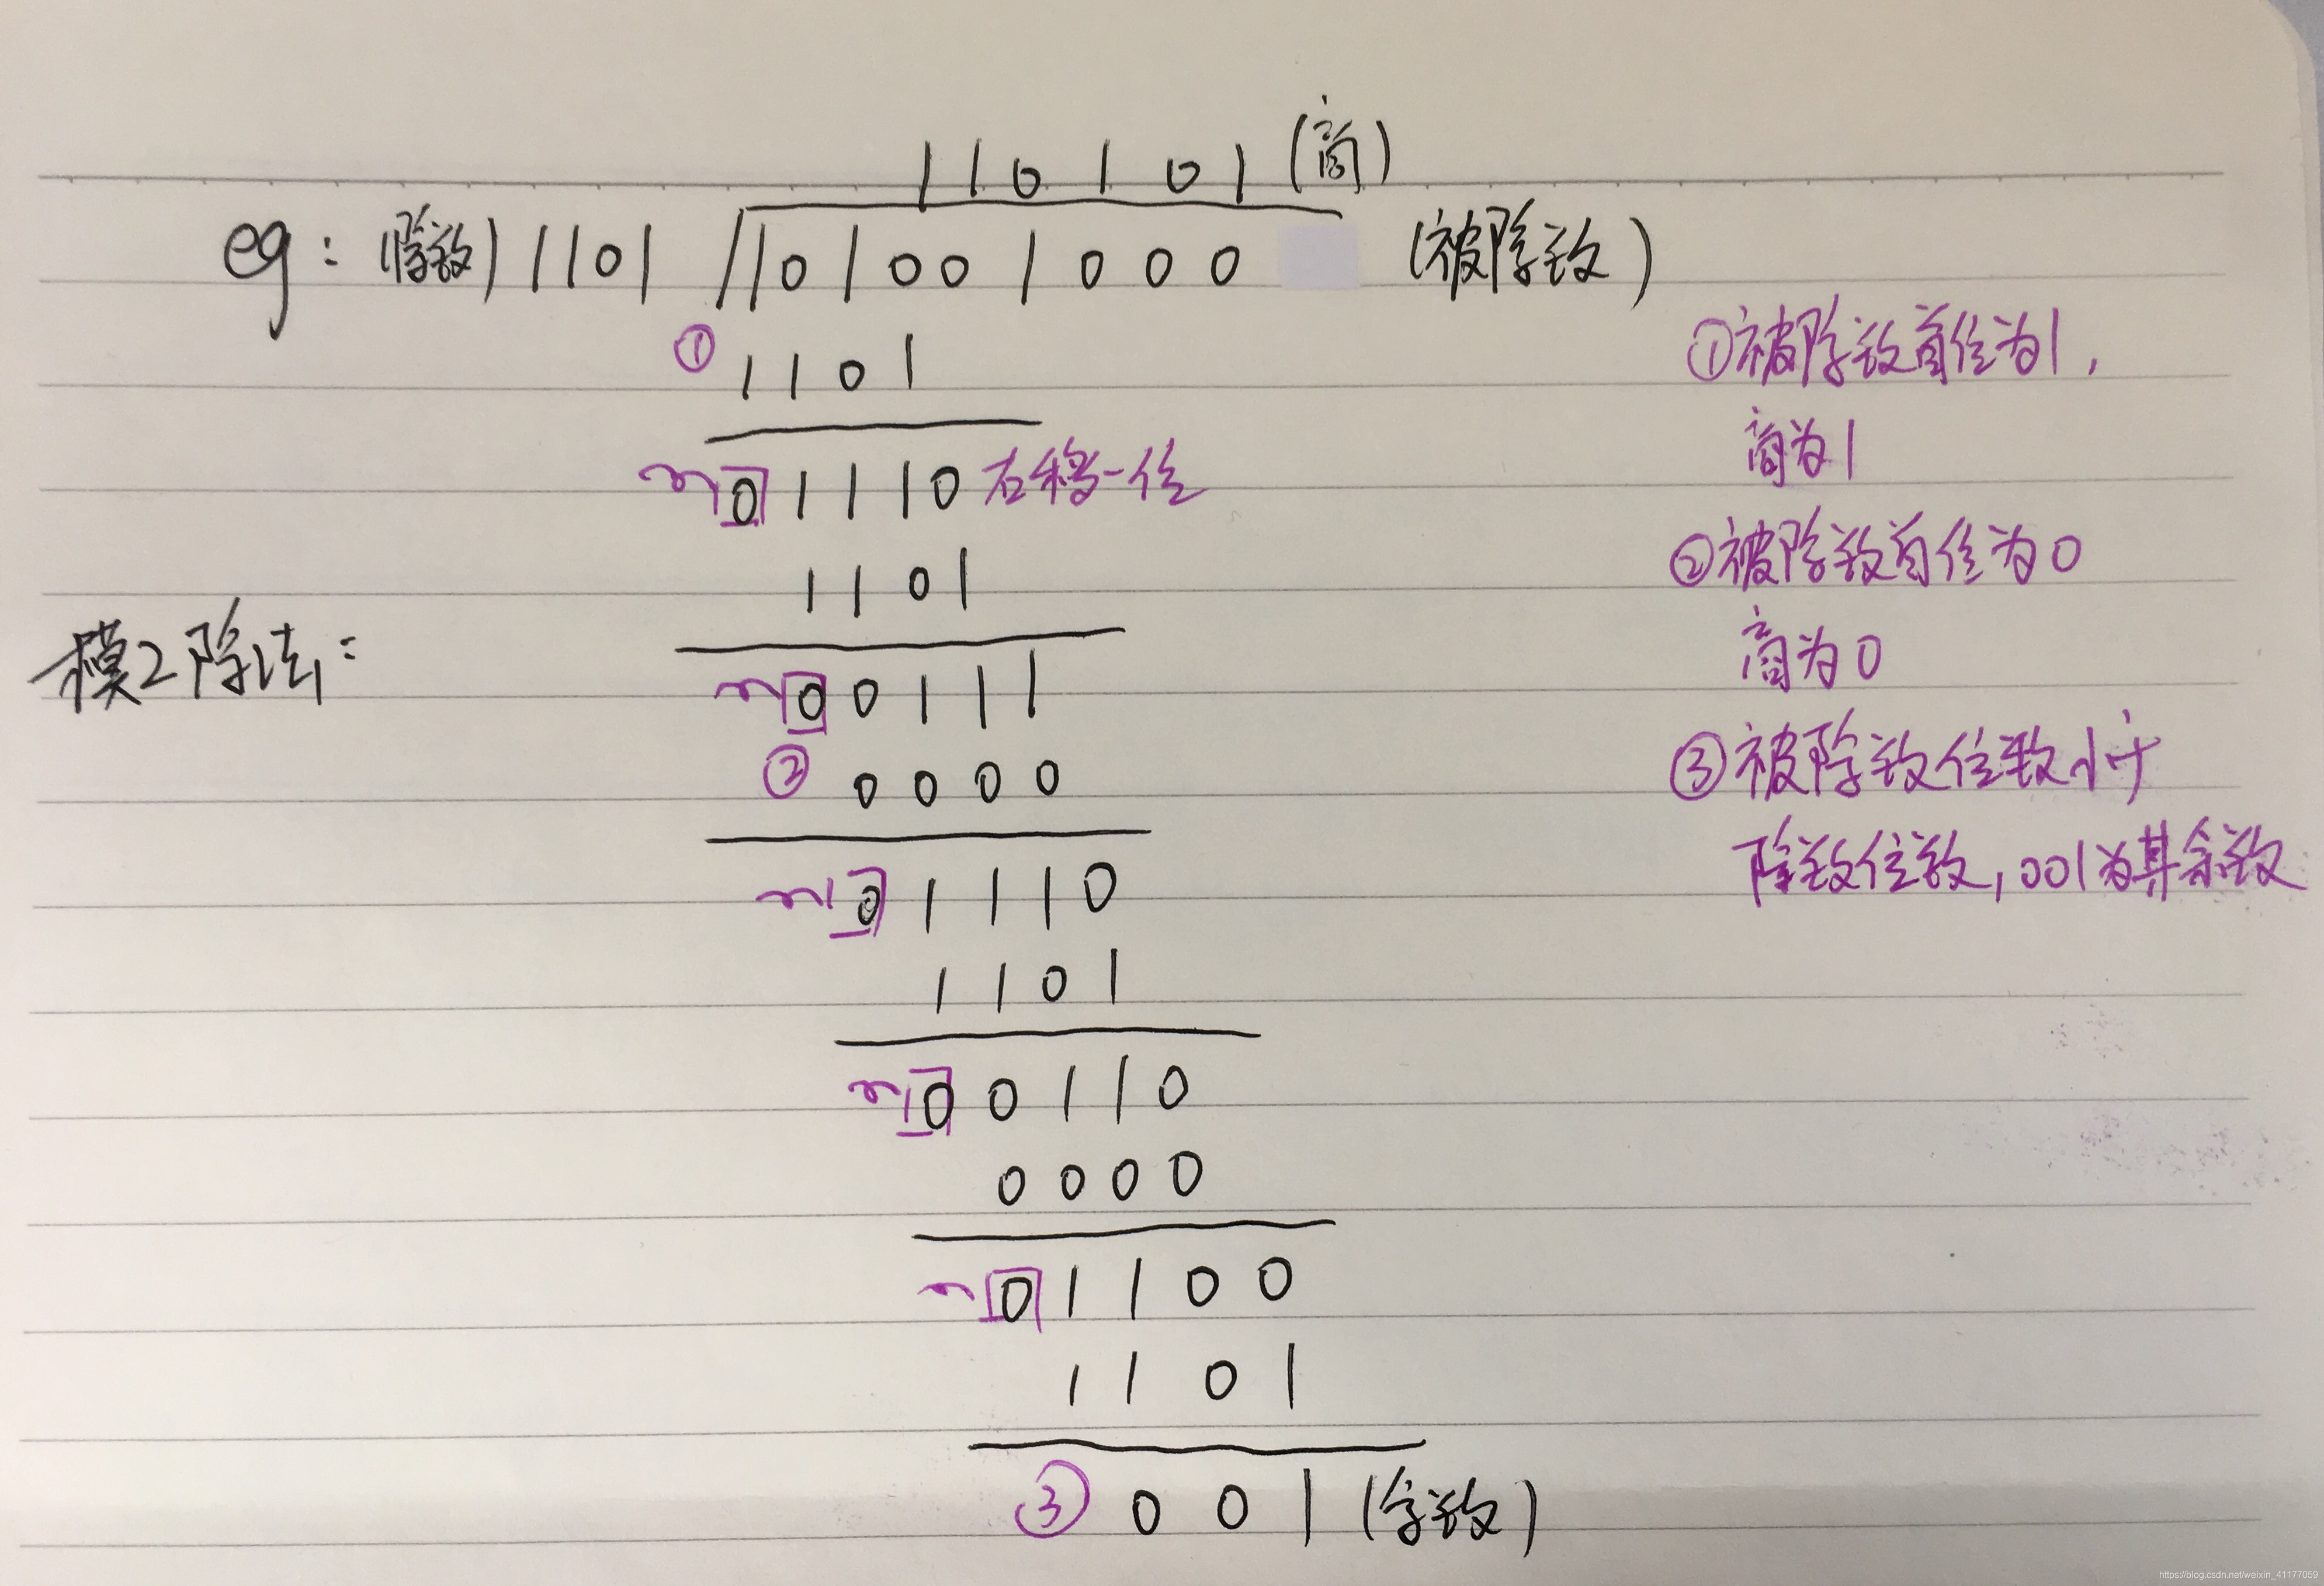 110101(商)
eg：(除数) 1101 101001000 (被除数)
① 1101
①被除数首位为1，
商为1
01110 右移一位
1101
②被除数首位为0
商为0
模2除法：
00111
② 0000
③被除数位数小于
除数位数，001为其余数
01110
1101
00110
0000
01100
1101
③ 001 (余数)
https://blog.csdn.net/weixin_41177059